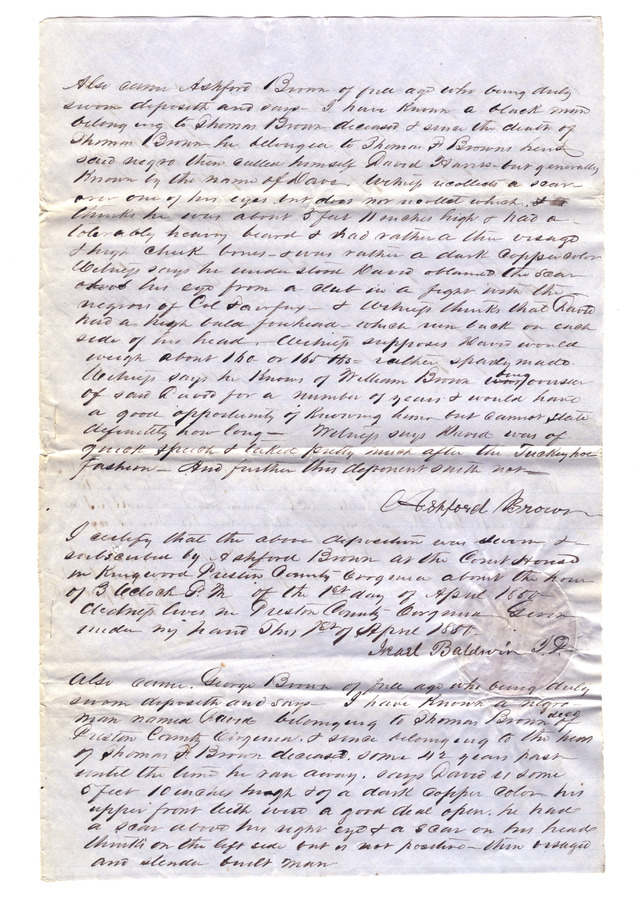 Also came Ashford Brown of full age who being duly
sworn deposeth and says - I have known a black man
belonging to Thomas Brown deceased & since the death of
Thomas Brown he belonged to Thomas F Browns heirs
said negro then called himself David Harris but generally
known by the name of Dave. Witness recollects a scar
over one of his eyes but does not recollect which, &
thinks he was about 5 feet 10 inches high & had a
tolerably heavy beard & had rather a thin visage
& high cheek bones - & was rather a dark copper color
Witness says he understood David obtained the scar
about his eye from a club in a fight with the
negroes of Col Fairfax - & Witness thinks that David
had a high bald forehead - which run back on each
side of his head. Witness supposes David would
weigh about 160 or 165 lbs = rather sparely made.
Witness says he knows of William Brown being owner
of said David for a number of years & would have
a good opportunity of knowing him but cannot state
definitely how long - Witness says David was of
quick speech & talked pretty much after the Tuckyhoe
Fashion - And further this deponent saith not -
Ashford Brown
I certify that the above deposition was sworn &
subscribed by Ashford Brown at the Court House
in Kingwood Preston County Virginia about the hour
of 3 Oclock P.M. of the 1st day of April 1850
Witness lives in Preston County Virginia Given
under my hand This 1st of April 1850
Israel Baldwin J.P.
Also came. George Brown of full age who being duly
sworn deposeth and says I have known a negro
man named David belonging to Thomas Brown decd of
Preston County Virginia. & since belonging to the heirs
of Thomas F Brown deceased, some 42 years past
until the time he ran away. says David is some
5 feet 10 inches high & of a dark copper color his
upper front teeth were a good deal open. he had
a scar about his right eye & a scar on his head
thinks on the left side but is not positive - thin visaged
and slender built man